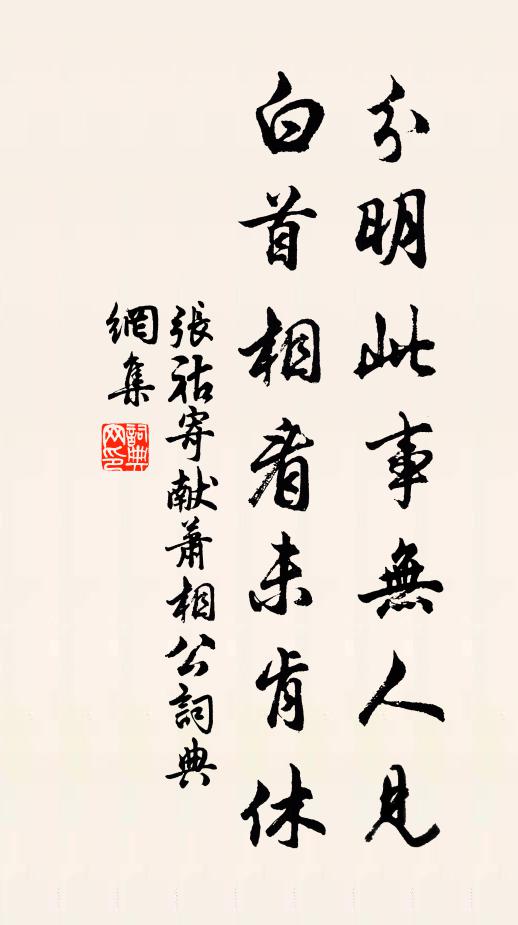 分明此事無人見
白首相看未肯休
張祜寄献蕭相公詞典
網集
詞典
网印